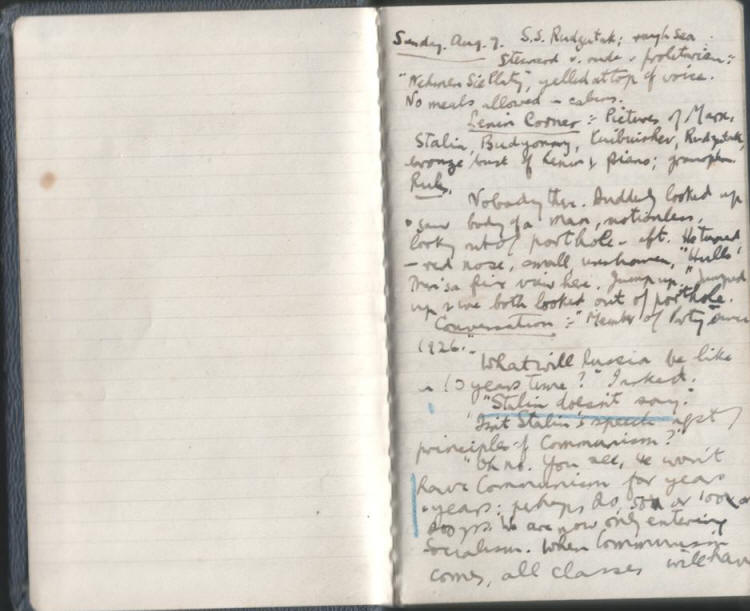 Sunday. Aug. 7. S.S. Rudzutak; rough sea.
Steward v. rude & proletarian:-
"Nehmen Sie Platz", yelled at top of voice.
No meals allowed in cabins.
Lenin Corner :- Pictures of Marx,
Stalin, Budyonny, Kuibuishev, Rudzutak,
bronze bust of Lenin & piano; gramophone.
Rules.
Nobody there. Suddenly looked up
& saw body of a man, motionless,
looking out of porthole - aft. He turned
- red nose, small, unshaven, "Hullo!
There's a fine view here. Jump up." Jumped
up & we both looked out of porthole.
Conversation :- "Member of Party since
1926."
"What will Russia be like
in 10 years time?" I asked.
"Stalin doesn't say."
"Isn't Stalin's speech agst
principles of Communism?"
"Oh no. You see, we won't
have Communism for years
& years; perhaps 20, 50, or 100 or
200 yrs. We are now only entering
Socialism. When Communism
comes, all classes will have